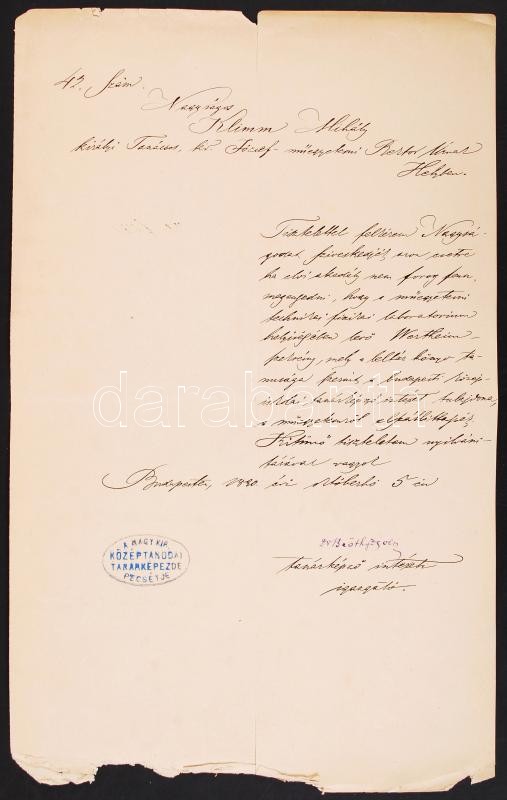 42. szám.
Nagyságos
Klimm Mihály
királyi Tanácsos, kir. József-műegyetemi Rector Úrnak
Helyben.
Tisztelettel felkérem Nagysá-
godat szíveskedjék azon esetre
ha elvi akadály nem forog fenn
megengedni, hogy a műegyetemi
technikai fizikai laboratorium
helyiségében levő Wertheim-
szekrény, mely a leltár könyv ta-
núsága szerint a budapesti közép-
iskolai tanárképző intézet tulajdona,
a műegyetemről elszállíttassék.
Kitünő tiszteletem nyilvání-
tásával vagyok
Budapesten, 1890. évi október hó 5 én
dr Beöthy Zsolt
tanárképző intézeti
igazgató.
A MAGY. KIR.
KÖZÉPTANODAI
TANÁRKÉPEZDE
PECSÉTJE
darabanth